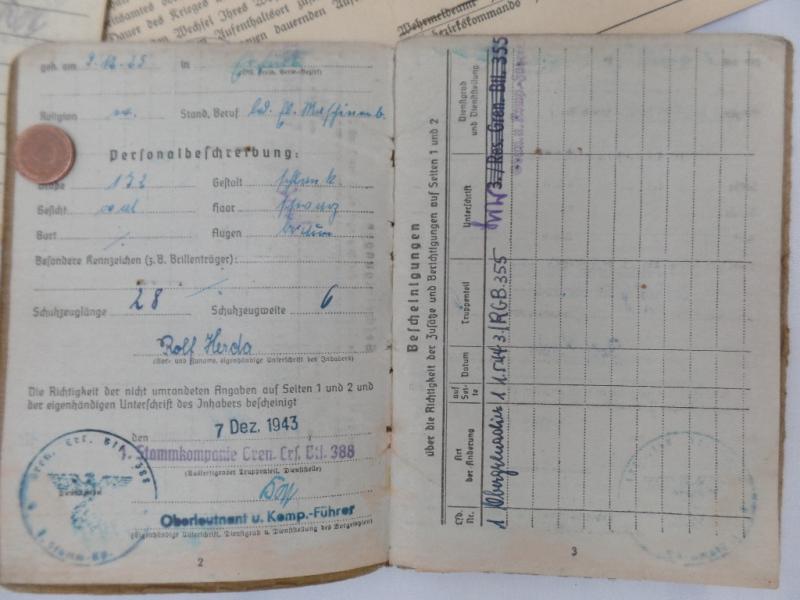 des Krieges
Wechsel Ihres
Aufenthaltsort
dauernden
Wehrmeldeamt
bezirkskommando
geb. am 9.12.25 in
Religion ev. Stand, Beruf
Personalbeschreibung:
Größe 172 Gestalt schlank
Gesicht oval Haar schwarz
Bart Augen braun
Besondere Kennzeichen (z.B. Brillenträger):
Schuhzeuglänge 28 Schuhzeugweite 6
Rolf Herda
(Vor- und Zuname, eigenhändige Unterschrift des Inhabers)
Die Richtigkeit der nicht umrandeten Angaben auf Seiten 1 und 2 und
der eigenhändigen Unterschrift des Inhabers bescheinigt
den 7 Dez. 1943
1. Stammkompanie Gren. Ers. Btl. 388
(Ausfertigender Truppenteil, Dienststelle)
Oberleutnant u. Komp.-Führer
(Eigenhändige Unterschrift, Dienstgrad u. Dienststellung des Vorgesetzten)
Gren. Ers. Btl. 388
2
Bescheinigungen
über die Richtigkeit der Zusätze und Berichtigungen auf Seiten 1 und 2
Lfd. Nr. Art der Änderung auf Seite Datum Truppenteil Unterschrift Dienstgrad und Dienststellung
1 Obergrenadier 1 1.5.44 3./RGB.355 3./Res. Gren. Btl. 355
3